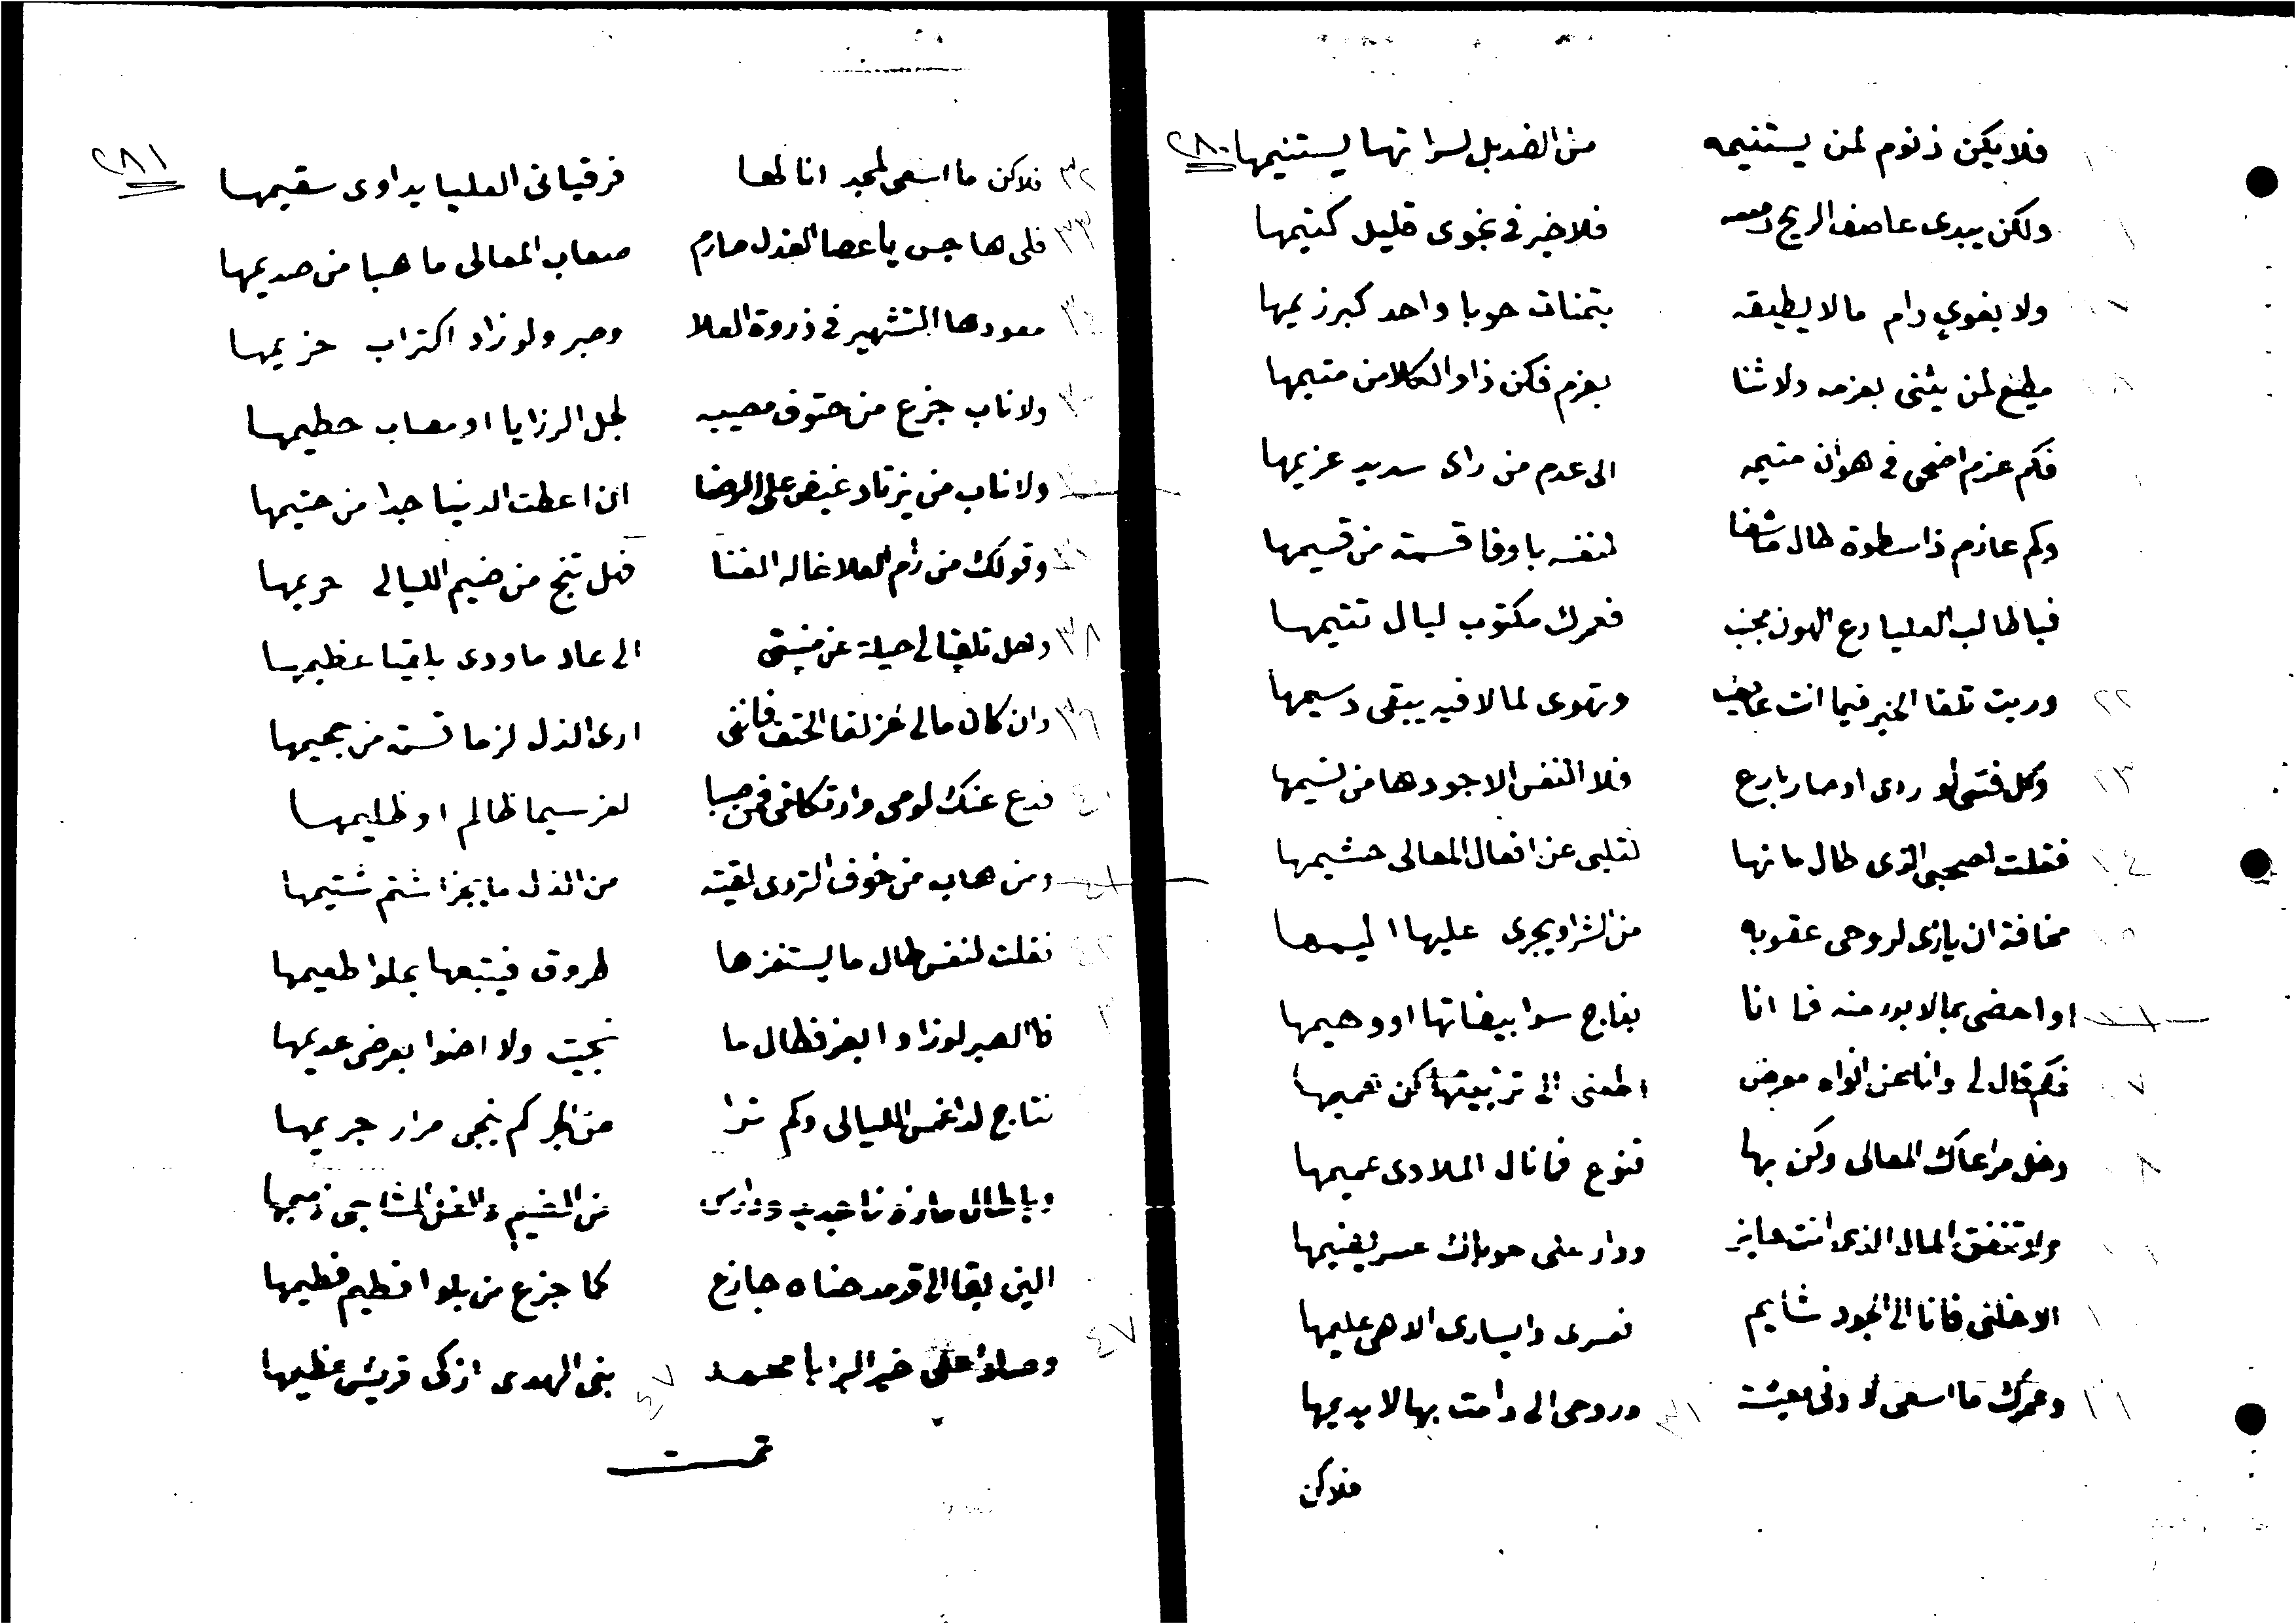 ٢٨٠
فلا يكن ذنوم لمن يستنيمه من الضد بل لسراتها يستنيمها
ولكن يبدى عاصف الريح فلا خير فى نجوى قليل كتيمها
ولا بغوي رام مالا يطيقه بتمنات حوبا واحد كبر زيمها
مطيع لمن يثنى بعزمه ولا ثنا بعزم فكن ذا و العلا من متيمها
فكم عزم اضحى فى هوان متيمه الى عدم من راى سديد عزيمها
وكم عازم ذا سطوة طال لنفسه باوفا قسمة من قسيمها
فيا طالب العليا دع الهون مجنب فعمرك مكتوب ليال تتيمها
٢٢ وربت تلقا الخير فيما انت عايف وتهوى لما لا فيه يبقى دسيمها
٢٣ وكل فتى لو ردى او صار بارع فلا النفس الا جودها من نسيمها
٢٤ فقلت لصحبى الذى طال مانها لتلبى عن افعال المعالى حشيمها
مخافة ان يازى لروحى عقوبه من الشر او يجرى عليها اليمها
او احضى بما لا بد منه فما انا بفاج سوا بيضاتها او وهيمها
٧ فكم قال لى وانا عن اقواه معرض اطعنى الى كن فهيمها
٨ وخل مراعاك المعالى وكن بها قنوع فما نال الملا دى عميمها
ولا تنفق المال الذى انت حايز ودار على حوباك عسر يفنيمها
الا خلنى فانا الى الجود شايم نعسرى وايسارى الاهى عليمها
٣١ وعمرك ما اسعى لادنى معيشت وروحى الى دامت بها لا يديمها ٣١
فلاكن
٢٨١
٣٢ فلاكن ما اسعى لمجد انا لها فرقيانى العليا يداوى سقيمها
٣٣ فلى هاجس ياعصا العذل صارم صعاب المعالى ما هبا من صديمها
٣٤ معودها التشهير فى ذروة العلا وصبر ولو زاد اكتراب خزيمها
ولا ناب جزع من حتوف مصيبه لجل الرزايا او مصاب حطيمها
ولا ناب من يزتاد غيض على الرضا ان اعطت الدنيا جدا من حتيمها
وقولك من رام العلا غاله الفنا فهل تنج من ضيم الليالى حريمها
٣٨ وهل تلقا لى حيلة عن منيتى الى عاد ما ودى باقيا عظيمها
٣٩ وان كان مالى عن لقا الحتف فاننى ارى الذل لزما قست من جحيمها
٤٠ فدع عنك لومى وارتكافى لعز سيما ظالم او ظليمها
٤١ ومن هاب من خوف الردى لقيته من الذل ما يجزا شتم شتيمها
٤٢ فقلت لنفس طال ما يستفزها طروق فيتبعها بحلوا طعيمها
فالصبر لو زاد ابعز فطال ما نجيت ولا اضوا بعرض عديمها
نتاج لدا غمس الليالى وكم ترا من الجر كم ينجى مرار جريمها
ويا طال
الين لقا الى قرمد حناه جازع كما جزع من بلوا فطيم فطيمها
٤٧ وصلوا على خير البرايا محمد نبى الهدى ازكى قريش عظيمها ٤٧
تمت